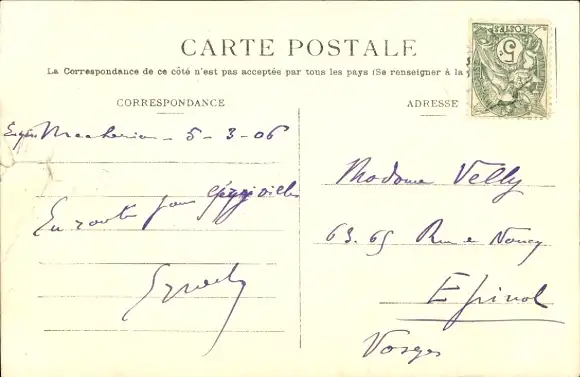 CARTE POSTALE
La Correspondance de ce côté n'est pas acceptée par tous les pays (Se renseigner à la
CORRESPONDANCE
5-3-06
En route pour
ADRESSE
Madame Velly
63.65 Rue de Nancy
Epinal
Vosges
POSTES
5